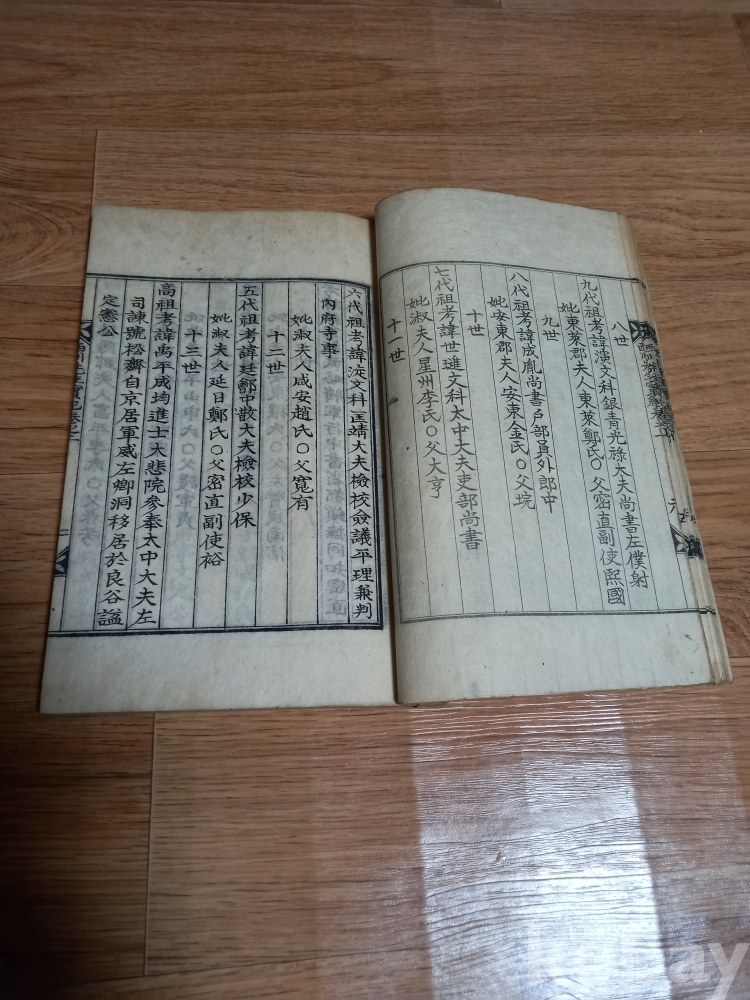 八世
九代祖考諱演文科銀青光祿大夫尚書左僕射
妣東萊郡夫人東萊鄭氏○父密直副使熙國
九世
八代祖考諱成胤尚書戶部員外郎中
妣安東郡夫人安東金氏○父坃
十世
七代祖考諱世進文科太中大夫吏部尚書
妣淑夫人星州李氏○父大亨
十一世
六代祖考諱文科匡靖大夫檢校僉議平理兼判
內府寺事
妣淑夫人咸安趙氏○父寬有
十二世
五代祖考諱廷中散大夫檢校少保
妣淑夫人延日鄭氏○父密直副使裕
十三世
高祖考諱禹平成均進士大悲院參奉太中大夫左
司諫號松齋自京居軍威左鄉洞移居於良谷諡
定憲公
kobay